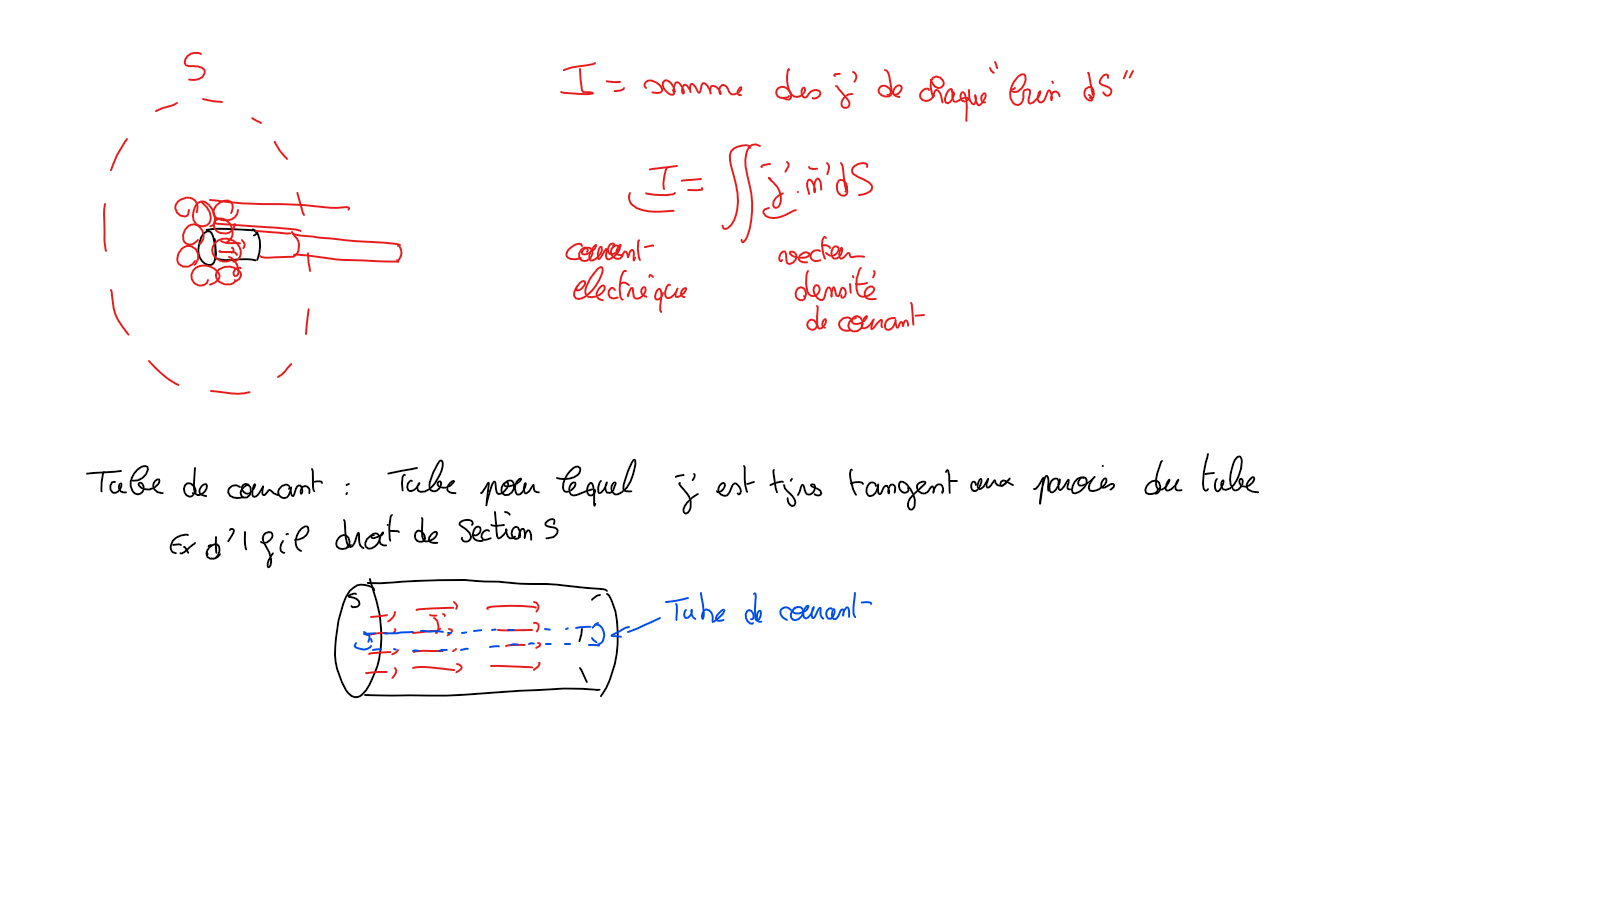 S
I = somme des j⃗ de chaque "brin dS"
I = ∬ j⃗ . n⃗ dS
courant électrique
vecteur densité de courant
Tube de courant : Tube pour lequel j⃗ est tjrs tangent aux parois du tube
Ex d'1 fil droit de section S
S
j⃗
Tube de courant